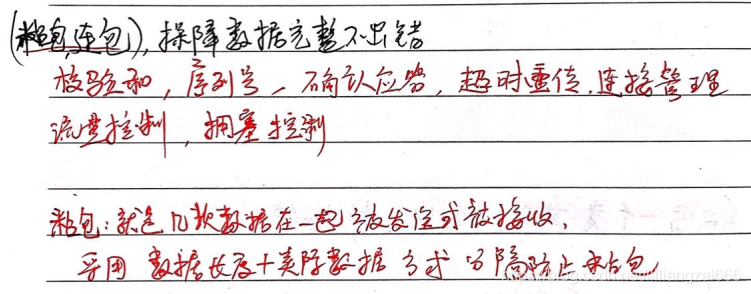 (粘包,连包),保障数据完整不出错
校验和,序列号,确认应答,超时重传,连接管理
流量控制,拥塞控制
粘包:就是几款数据在一起被发送或被接收,
采用 数据长度+实际数据 方式 分隔防止粘包